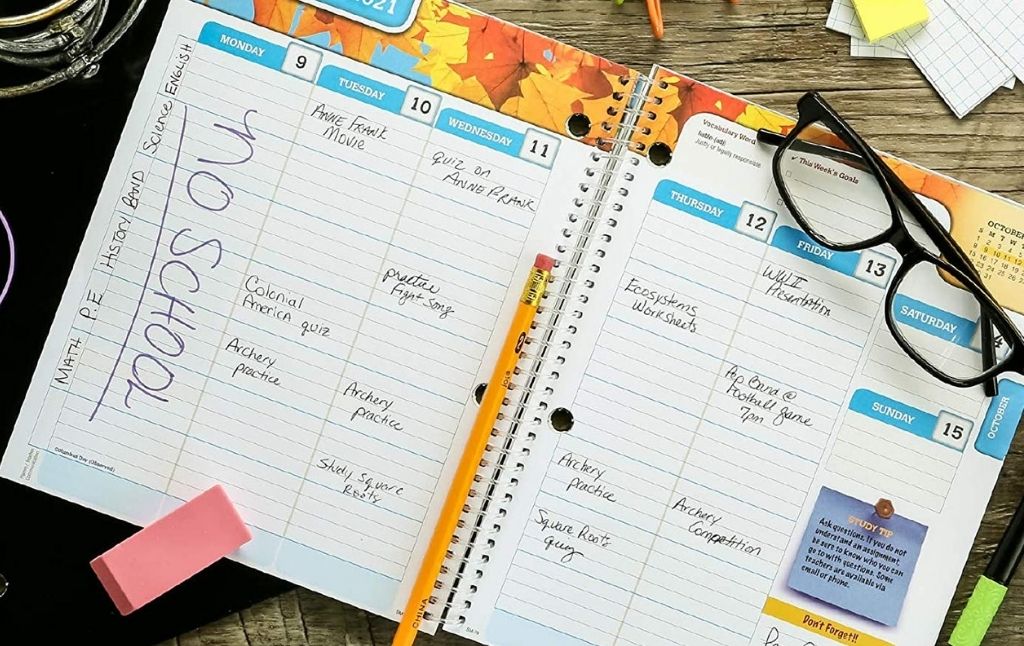 2021
MONDAY 9
TUESDAY 10
WEDNESDAY 11
ENGLISH
Science
HISTORY
BAND
P.E
MATH
NO SCHOOL
Columbus Day (Observed)
ANNE FRANK
MOVIE
Colonial
AMERICA quiz
Archery
practice
quiz on
ANNE FRANK
practice
Fight Song
Archery
practice
Study Square
Roots
THURSDAY 12
FRIDAY 13
SATURDAY
SUNDAY 15
Vocabulary Word
Justly or legally responsible
✓ This Week's Goals
OCTOBER
S M T W
OCTOBER
Ecosystems
Worksheets
Archery
practice
Square Roots
quiz
WWII
Presentation
Pep Band @
Football game
7pm
Archery
Competition
STUDY TIP
Ask questions. If you do not
understand an assignment,
be sure to know who you can
go to with questions. Some
teachers are available via
email or phone.
Don't Forget!!
CHINA